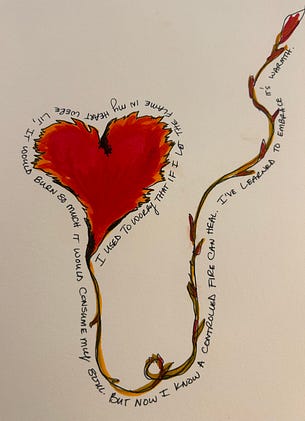 I USED TO WORRY THAT IF I THE FLAME IN my HEART WERE LIT, IT WOULD BURN SO MUCH IT WOULD CONSUME SOUL. BUT NOW I KNOW A CONTROLLED FIRE CAN HEAL. I'VE LEARNED TO EMBRACE IT'S WARMTH